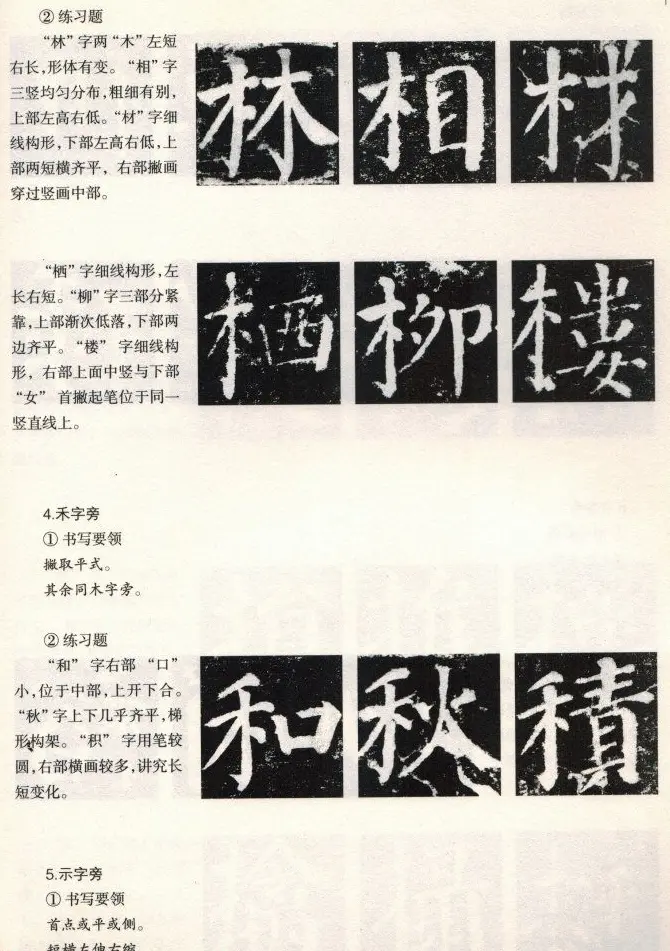 ② 练习题
“林”字两“木”左短
右长，形体有变。“相”字
三竖均匀分布，粗细有别，
上部左高右低。“材”字细
线构形，下部左高右低，上
部两短横齐平，右部撇画
穿过竖画中部。
林 相 材
“栖”字细线构形，左
长右短。“柳”字三部分紧
靠，上部渐次低落，下部两
边齐平。“楼”字细线构
形，右部上面中竖与下部
“女”首撇起笔位于同一
竖直线上。
栖 柳 楼
4.禾字旁
① 书写要领
撇取平式。
其余同木字旁。
② 练习题
“和”字右部“口”
小，位于中部，上开下合。
“秋”字上下几乎齐平，梯
形构架。“积”字用笔较
圆，右部横画较多，讲究长
短变化。
和 秋 積
5.示字旁
① 书写要领
首点或平或侧。
短横左伸右缩